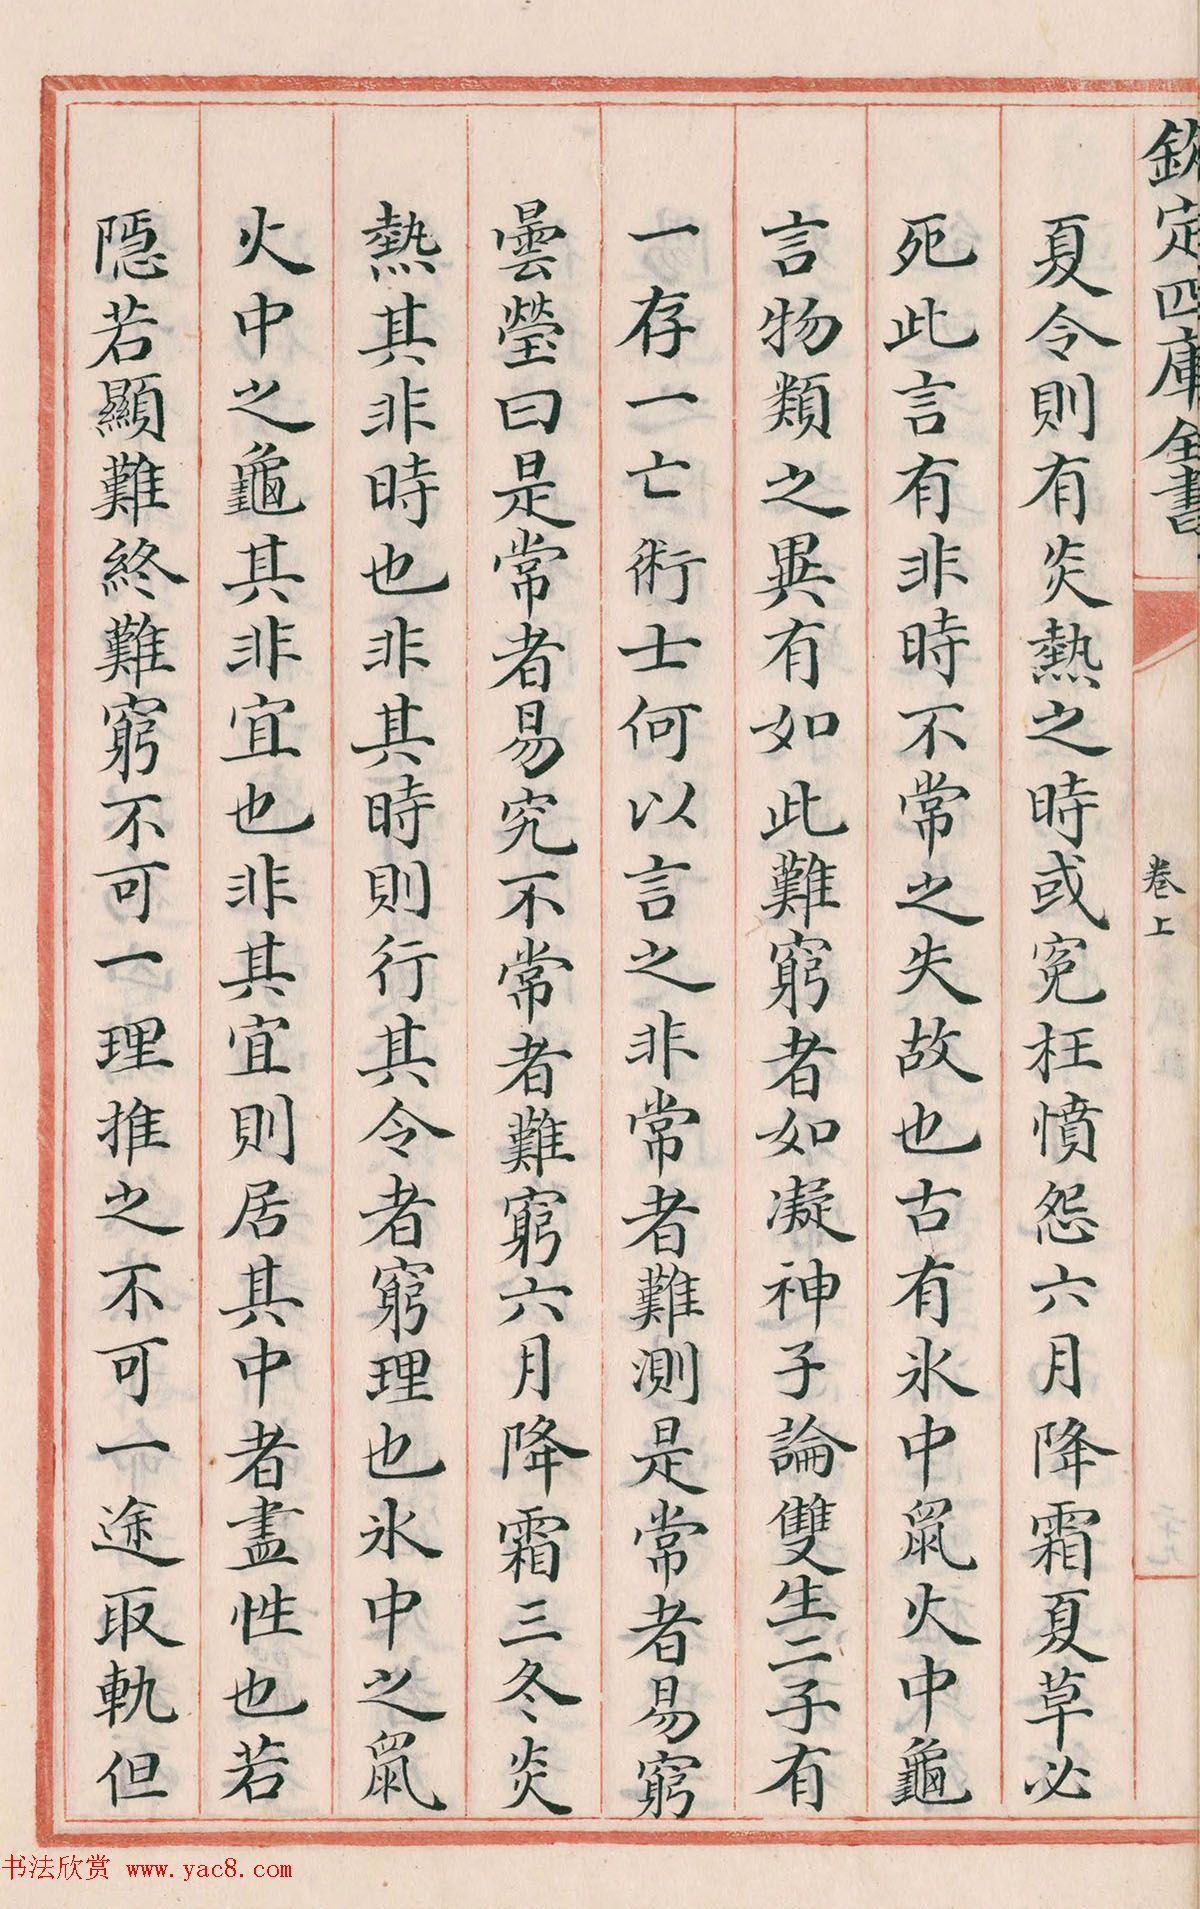 欽定四庫全書
卷上
夏令則有炎熱之時或寃枉憤怨六月降霜夏草必
死此言有非時不常之失故也古有氷中鼠火中龜
言物類之異有如此難窮者如凝神子論雙生二子有
一存一亡術士何以言之非常者難測是常者易窮
曇瑩曰是常者易究不常者難窮六月降霜三冬炎
熱其非時也非其時則行其令者窮理也氷中之鼠
火中之龜其非宜也非其宜則居其中者盡性也若
隱若顯難終難窮不可一理推之不可一途取軌但
书法欣赏 www.yac8.com